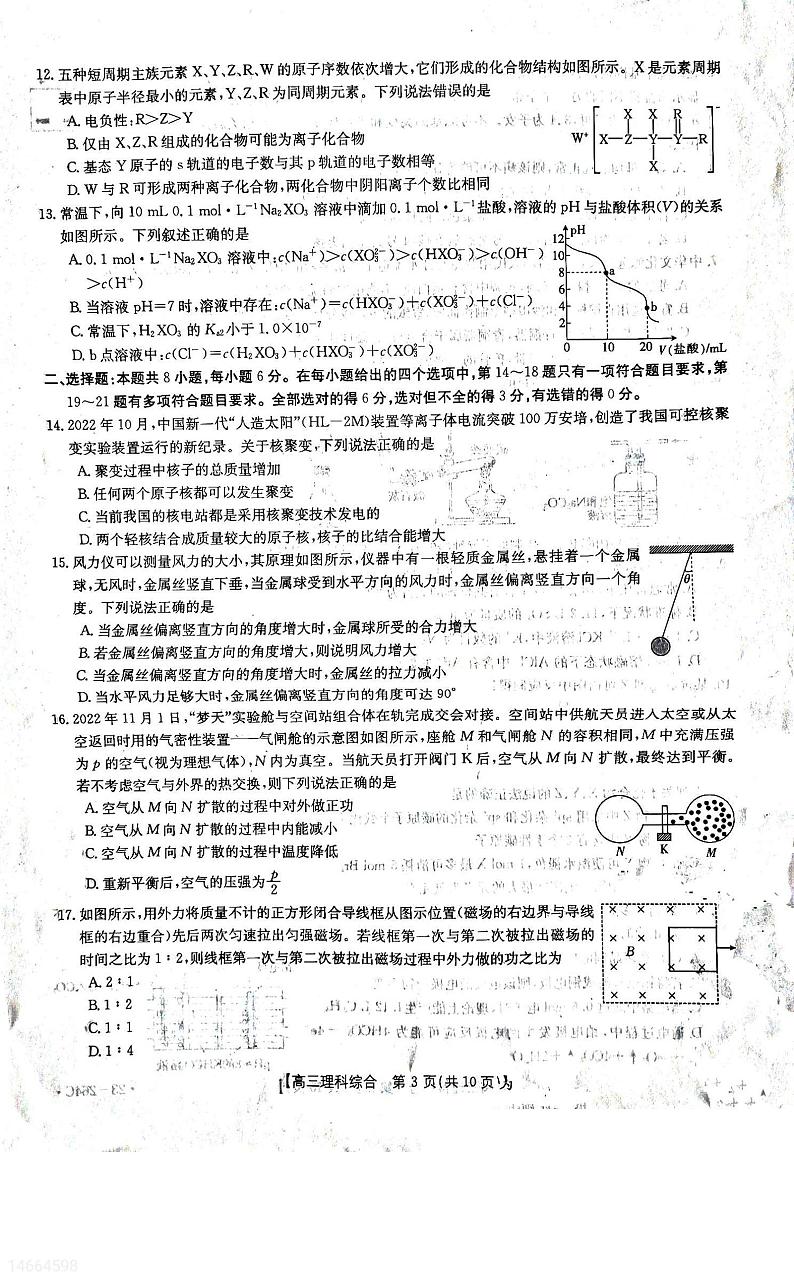 12. 五种短周期主族元素 X、Y、Z、R、W 的原子序数依次增大,它们形成的化合物结构如图所示。X 是元素周期
表中原子半径最小的元素,Y、Z、R 为同周期元素。下列说法错误的是
A. 电负性:R>Z>Y
B. 仅由 X、Z、R 组成的化合物可能为离子化合物
C. 基态 Y 原子的 s 轨道的电子数与其 p 轨道的电子数相等
D. W 与 R 可形成两种离子化合物,两化合物中阴阳离子个数比相同
X X R
W⁺ X—Z—Y—Y—R
X
13. 常温下,向 10 mL 0.1 mol·L⁻¹Na₂XO₃ 溶液中滴加 0.1 mol·L⁻¹盐酸,溶液的 pH 与盐酸体积(V)的关系
如图所示。下列叙述正确的是
A. 0.1 mol·L⁻¹Na₂XO₃ 溶液中:c(Na⁺)>c(XO₃²⁻)>c(HXO₃⁻)>c(OH⁻)
>c(H⁺)
B. 当溶液 pH=7 时,溶液中存在:c(Na⁺)=c(HXO₃⁻)+c(XO₃²⁻)+c(Cl⁻)
C. 常温下,H₂XO₃ 的 Kₐ₂小于 1.0×10⁻⁷
D. b 点溶液中:c(Cl⁻)=c(H₂XO₃)+c(HXO₃⁻)+c(XO₃²⁻)
pH
12
10
8
6
4
2
a
b
0 10 20 V(盐酸)/mL
二、选择题:本题共 8 小题,每小题 6 分。在每小题给出的四个选项中,第 14~18 题只有一项符合题目要求,第
19~21 题有多项符合题目要求。全部选对的得 6 分,选对但不全的得 3 分,有选错的得 0 分。
14. 2022 年 10 月,中国新一代“人造太阳”(HL-2M)装置等离子体电流突破 100 万安培,创造了我国可控核聚
变实验装置运行的新纪录。关于核聚变,下列说法正确的是
A. 聚变过程中核子的总质量增加
B. 任何两个原子核都可以发生聚变
C. 当前我国的核电站都是采用核聚变技术发电的
D. 两个轻核结合成质量较大的原子核,核子的比结合能增大
15. 风力仪可以测量风力的大小,其原理如图所示,仪器中有一根轻质金属丝,悬挂着一个金属
球,无风时,金属丝竖直下垂,当金属球受到水平方向的风力时,金属丝偏离竖直方向一个角
度。下列说法正确的是
A. 当金属丝偏离竖直方向的角度增大时,金属球所受的合力增大
B. 若金属丝偏离竖直方向的角度增大,则说明风力增大
C. 当金属丝偏离竖直方向的角度增大时,金属丝的拉力减小
D. 当水平风力足够大时,金属丝偏离竖直方向的角度可达 90°
θ
16. 2022 年 11 月 1 日,“梦天”实验舱与空间站组合体在轨完成交会对接。空间站中供航天员进入太空或从太
空返回时用的气密性装置——气闸舱的示意图如图所示,座舱 M 和气闸舱 N 的容积相同,M 中充满压强
为 p 的空气(视为理想气体),N 内为真空。当航天员打开阀门 K 后,空气从 M 向 N 扩散,最终达到平衡。
若不考虑空气与外界的热交换,则下列说法正确的是
A. 空气从 M 向 N 扩散的过程中对外做正功
B. 空气从 M 向 N 扩散的过程中内能减小
C. 空气从 M 向 N 扩散的过程中温度降低
D. 重新平衡后,空气的压强为 p/2
N K M
17. 如图所示,用外力将质量不计的正方形闭合导线框从图示位置(磁场的右边界与导线
框的右边重合)先后两次匀速拉出匀强磁场。若线框第一次与第二次被拉出磁场的
时间之比为 1∶2,则线框第一次与第二次被拉出磁场过程中外力做的功之比为
A. 2∶1
B. 1∶2
C. 1∶1
D. 1∶4
B
【高三理科综合 第 3 页(共 10 页)】
14664598